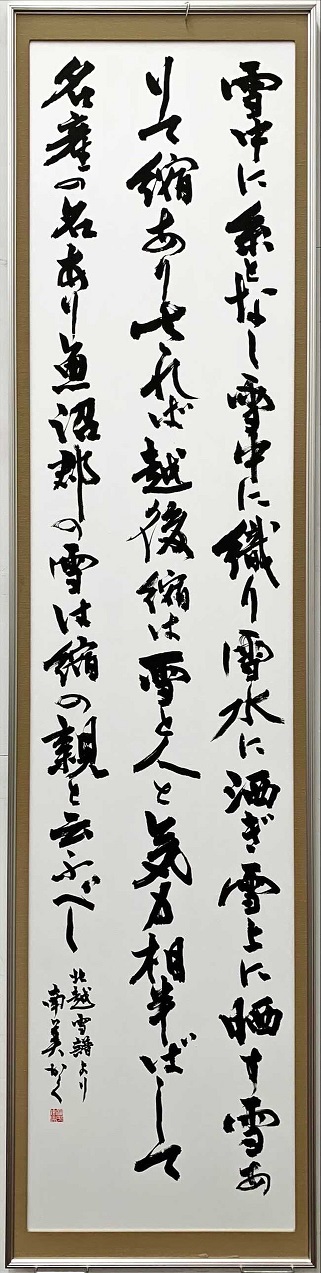 雪中に糸となし雪中に織り雪水に洒ぎ雪上に晒す雪あ
りて縮ありされば越後縮は雪と人と気力相半ばして
名産の名あり魚沼郡の雪は縮の親と云ふべし
北越雪譜より
南美かく